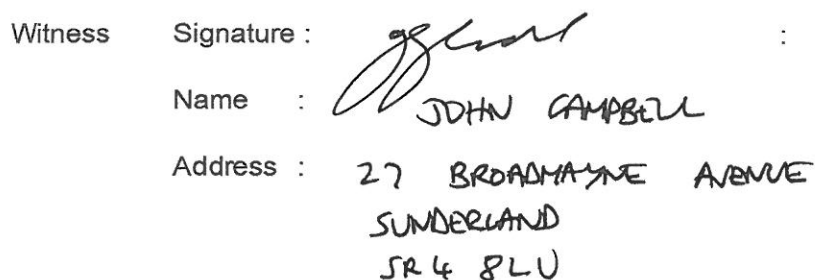 Witness Signature : :
Name : JOHN CAMPBELL
Address : 27 BROADMAYNE AVENUE
SUNDERLAND
SR4 8LU